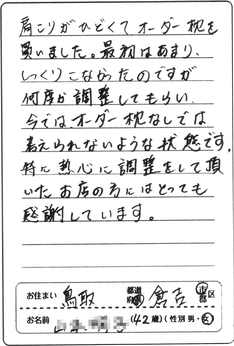 肩こりがひどくてオーダー枕を
買いました。最初はあまり、
しっくりこなかったのですが
何度か調整してもらい
今ではオーダー枕なしでは
考えられないような状態です。
特に熱心に調整をして頂
いたお店の方にはとっても
感謝しています。
お住まい 鳥取 都道府県 倉吉 市区
お名前 (42歳)(性別 男・女)